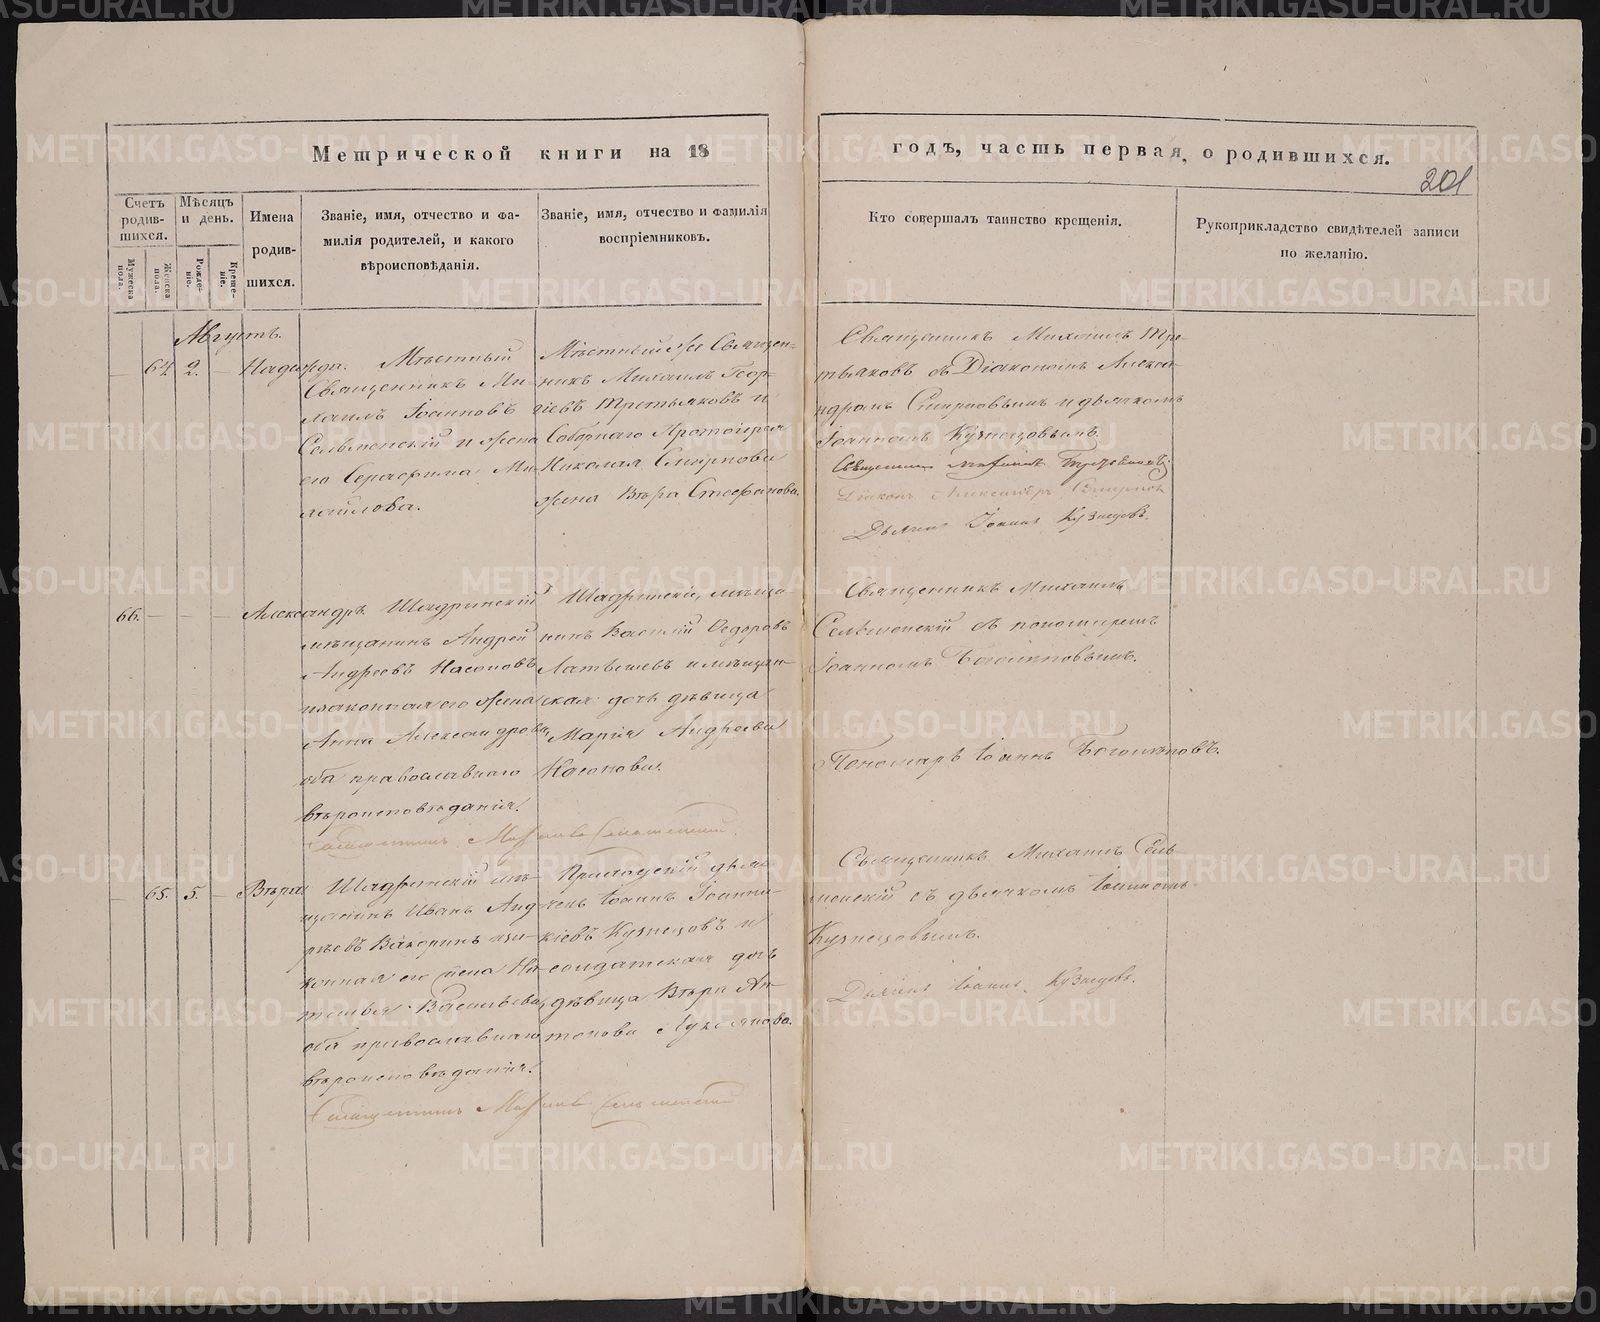 Метрической книги на 18
годъ, часть первая, о родившихся.
201
Счетъ родив-шихся.
Мужеска пола.
Женска пола.
Мѣсяцъ и день.
Рожде-ніе.
Креще-ніе.
Имена
родив-
шихся.
Званіе, имя, отчество и фа-
милія родителей, и какого
вѣроисповѣданія.
Званіе, имя, отчество и фамилія
воспріемниковъ.
Кто совершалъ таинство крещенія.
Рукоприкладство свидѣтелей записи
по желанію.
Августъ.
64. 2. Надежда.
Мѣстный
Священникъ Ми-
хаилъ Іоанновъ
Сельменскій и жена
его Серафима Ми-
хаилова.
Мѣстный же Священ-
никъ Михаилъ Геор-
гіевъ Третьяковъ и
Соборнаго Протоіерея
Николая Смирнова
жена Вѣра Стефанова.
Священникъ Михаилъ Тре-
тьяковъ съ Діакономъ Алекса-
ндромъ Смирновымъ и дьячкомъ
Іоанномъ Кузнецовымъ.
Священникъ Михаилъ Третьяковъ
Діаконъ Александръ Смирновъ
Дьячекъ Іоаннъ Кузнецовъ.
66. Александръ.
Шадринскій
мѣщанинъ Андрей
Андреевъ Насоновъ
и законная его жена
Анна Александрова,
оба православнаго
вѣроисповѣданія.
Шадринскіе, мѣща-
нинъ Василій Ѳедоровъ
Латышевъ и мѣщан-
ская дочь дѣвица
Марія Андреева
Насонова.
Священникъ Михаилъ
Сельменскій съ пономаремъ
Іоанномъ Боголѣповымъ.
Пономарь Іоаннъ Боголѣповъ.
Священникъ Михаилъ Сельменскій.
65. 5. Вѣра.
Шадринскій мѣ-
щанинъ Иванъ Анд-
реевъ Вахоринъ и за-
конная его жена На-
талья Васильева,
оба православнаго
вѣроисповѣданія.
Приходскій дья-
чекъ Іоаннъ Іоанни-
кіевъ Кузнецовъ и
солдатская дочь
дѣвица Вѣра Ан-
тонова Лукоянова.
Священникъ Михаилъ Сель-
менскій съ дьячкомъ Іоанномъ
Кузнецовымъ.
Дьячекъ Іоаннъ Кузнецовъ.
Священникъ Михаилъ Сельменскій
METRIKI.GASO-URAL.RU